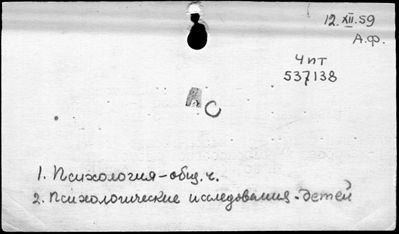 12.XII.59
А.Ф.
Чит
537138
С
1. Психология-общ.ч.
2. Психологические исследования-детей